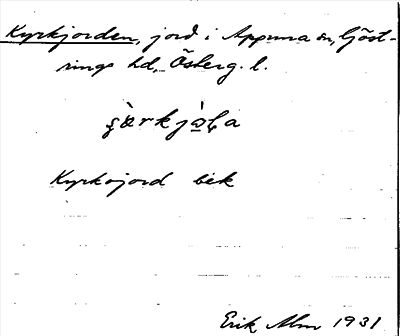 Kyrkjorden, jord i Appuna sn, Göst-
rings hd, Österg. l.
Kyrkojord bek
Erik Alm 1931